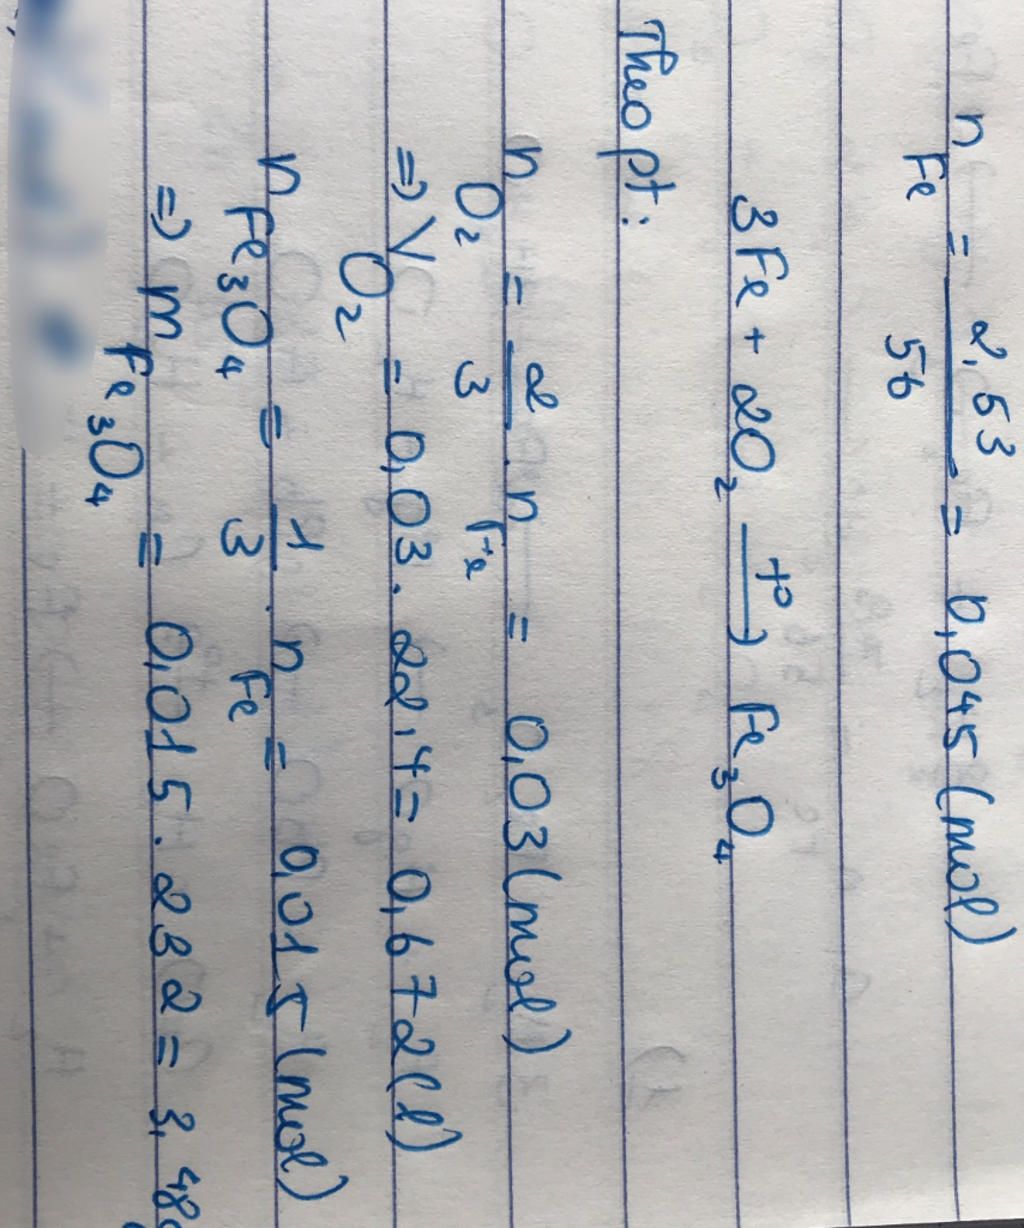 n Fe = 2,53 / 56 = 0,045 (mol)
3Fe + 2O₂ —t°→ Fe₃O₄
Theo pt:
n O₂ = 2/3 . n Fe = 0,03 (mol)
⇒ V O₂ = 0,03 . 22,4 = 0,672 (l)
n Fe₃O₄ = 1/3 . n Fe = 0,015 (mol)
⇒ m Fe₃O₄ = 0,015 . 232 = 3,48